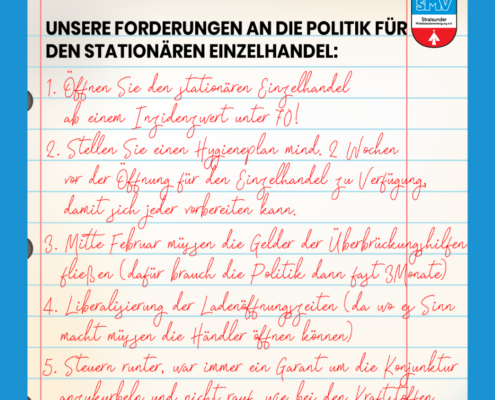 SMV
Stralsunder
Mittelstandsvereinigung e.V.
UNSERE FORDERUNGEN AN DIE POLITIK FÜR
DEN STATIONÄREN EINZELHANDEL:
1. Öffnen Sie den stationären Einzelhandel
ab einem Inzidenzwert unter 70!
2. Stellen Sie einen Hygieneplan mind. 2 Wochen
vor der Öffnung für den Einzelhandel zu Verfügung,
damit sich jeder vorbereiten kann.
3. Mitte Februar müssen die Gelder der Überbrückungshilfen
fließen (dafür brauch die Politik dann fast 3Monate)
4. Liberalisierung der Ladenöffnungszeiten (da wo es Sinn
macht müssen die Händler öffnen können)
5. Steuern runter, war immer ein Garant um die Konjunktur
anzukurbeln und nicht rauf, wie bei den Kraftstoffen